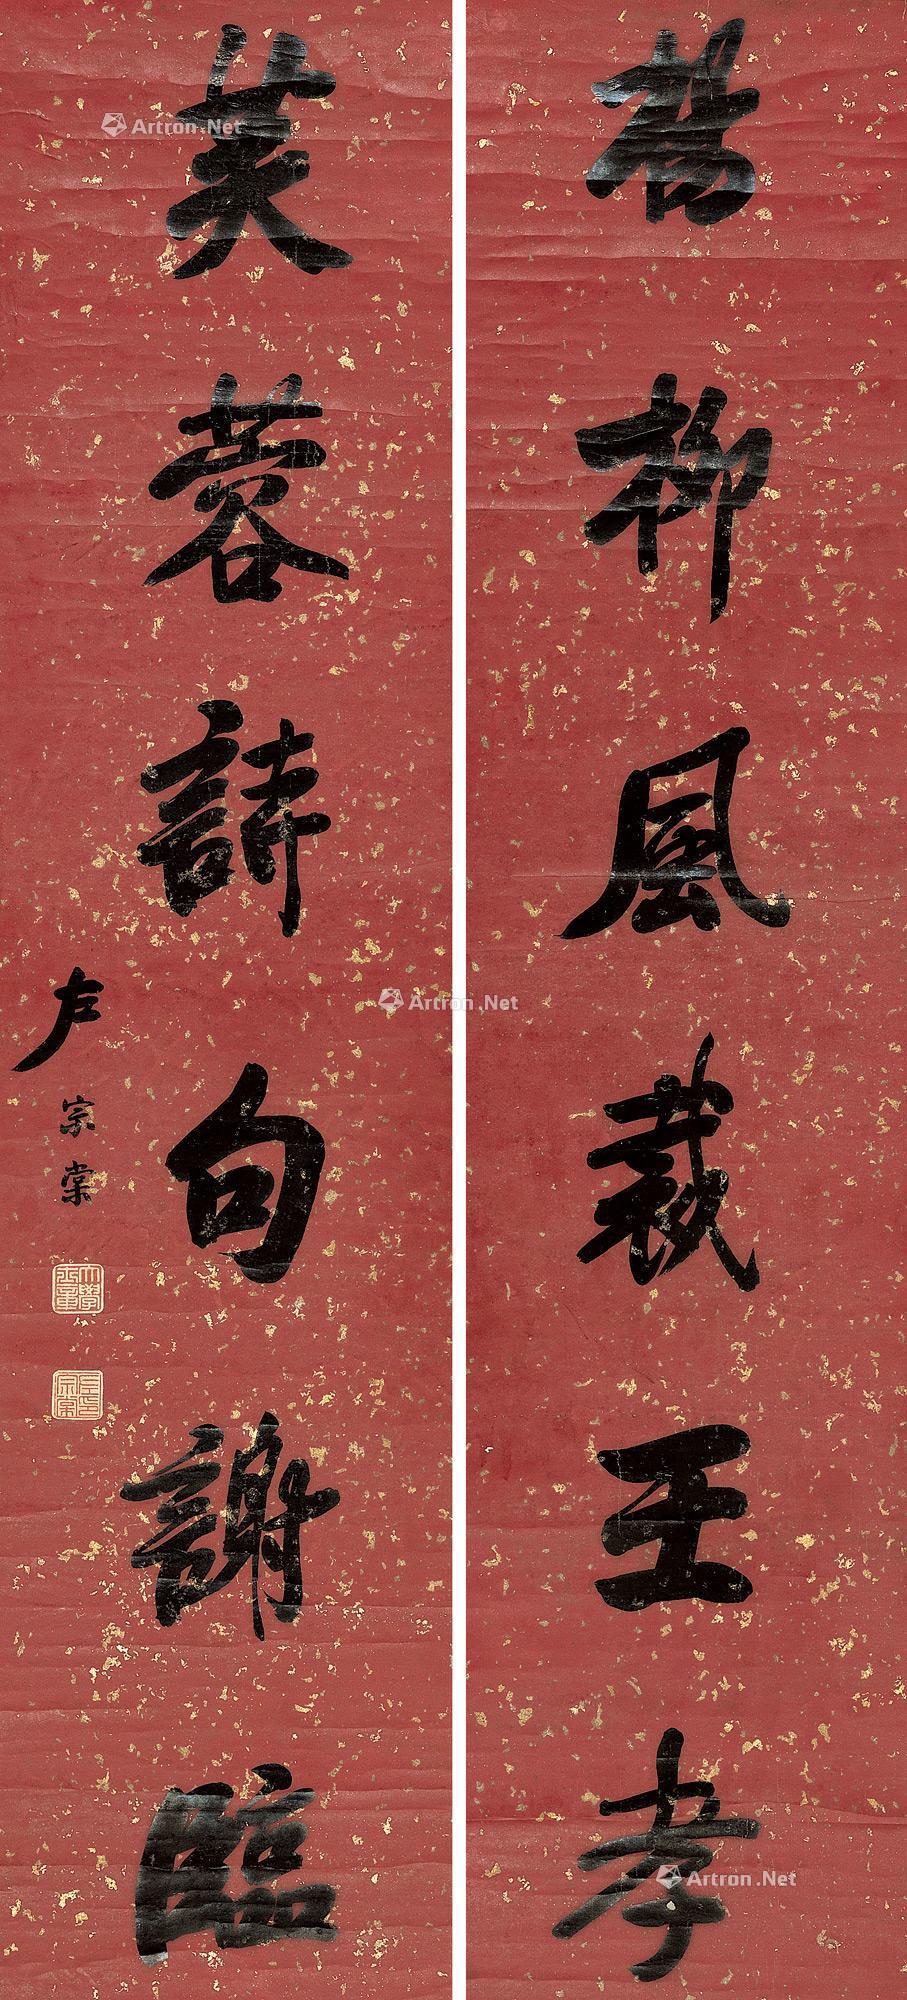 楊柳風裁王孝
芙蓉詩句謝臨
左宗棠
大學士章
左宗棠印
Artron.Net
Artron.Net
Artron.Net